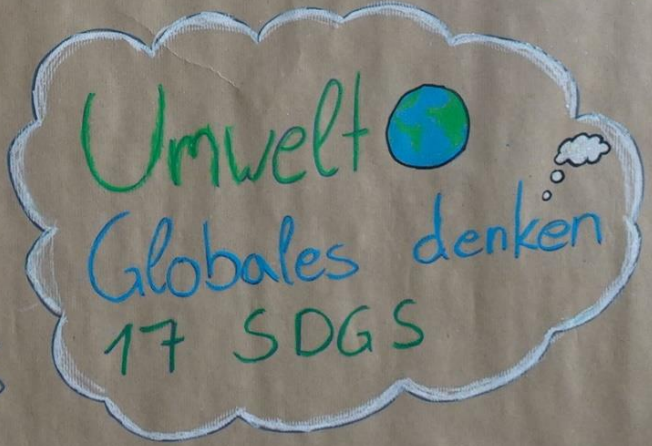 Umwelt
Globales denken
17 SDGS